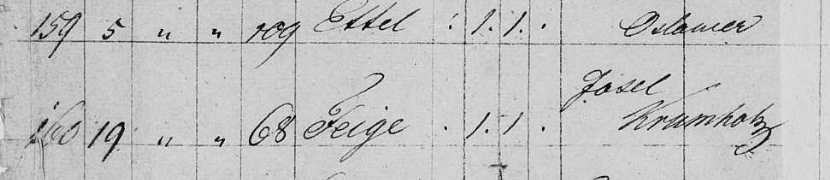 159 5 " " 109 Ettel . 1. 1. .
Josel
160 19 " " 68 Feige . 1. 1 . Krumholz